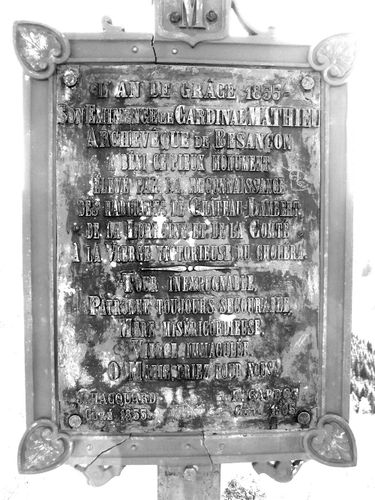 M
L'AN DE GRÂCE 1855
SON EMINENCE LE CARDINAL MATHIEU
ARCHEVEQUE DE BESANÇON
A BENI CE PIEUX MONUMENT
ÉLEVÉ PAR LA RECONNAISSANCE
DES HABITANTS DE CHÂTEAU-LAMBERT
DE LA LORRAINE ET DE LA COMTÉ
A LA VIERGE VICTORIEUSE DU CHOLÉRA
TOUR INEXPUGNABLE,
PATRONNE TOUJOURS SECOURABLE,
MÈRE MISÉRICORDIEUSE,
VIERGE IMMACULÉE,
O MARIE PRIEZ POUR NOUS!
JACQUARD
CURÉ 1855